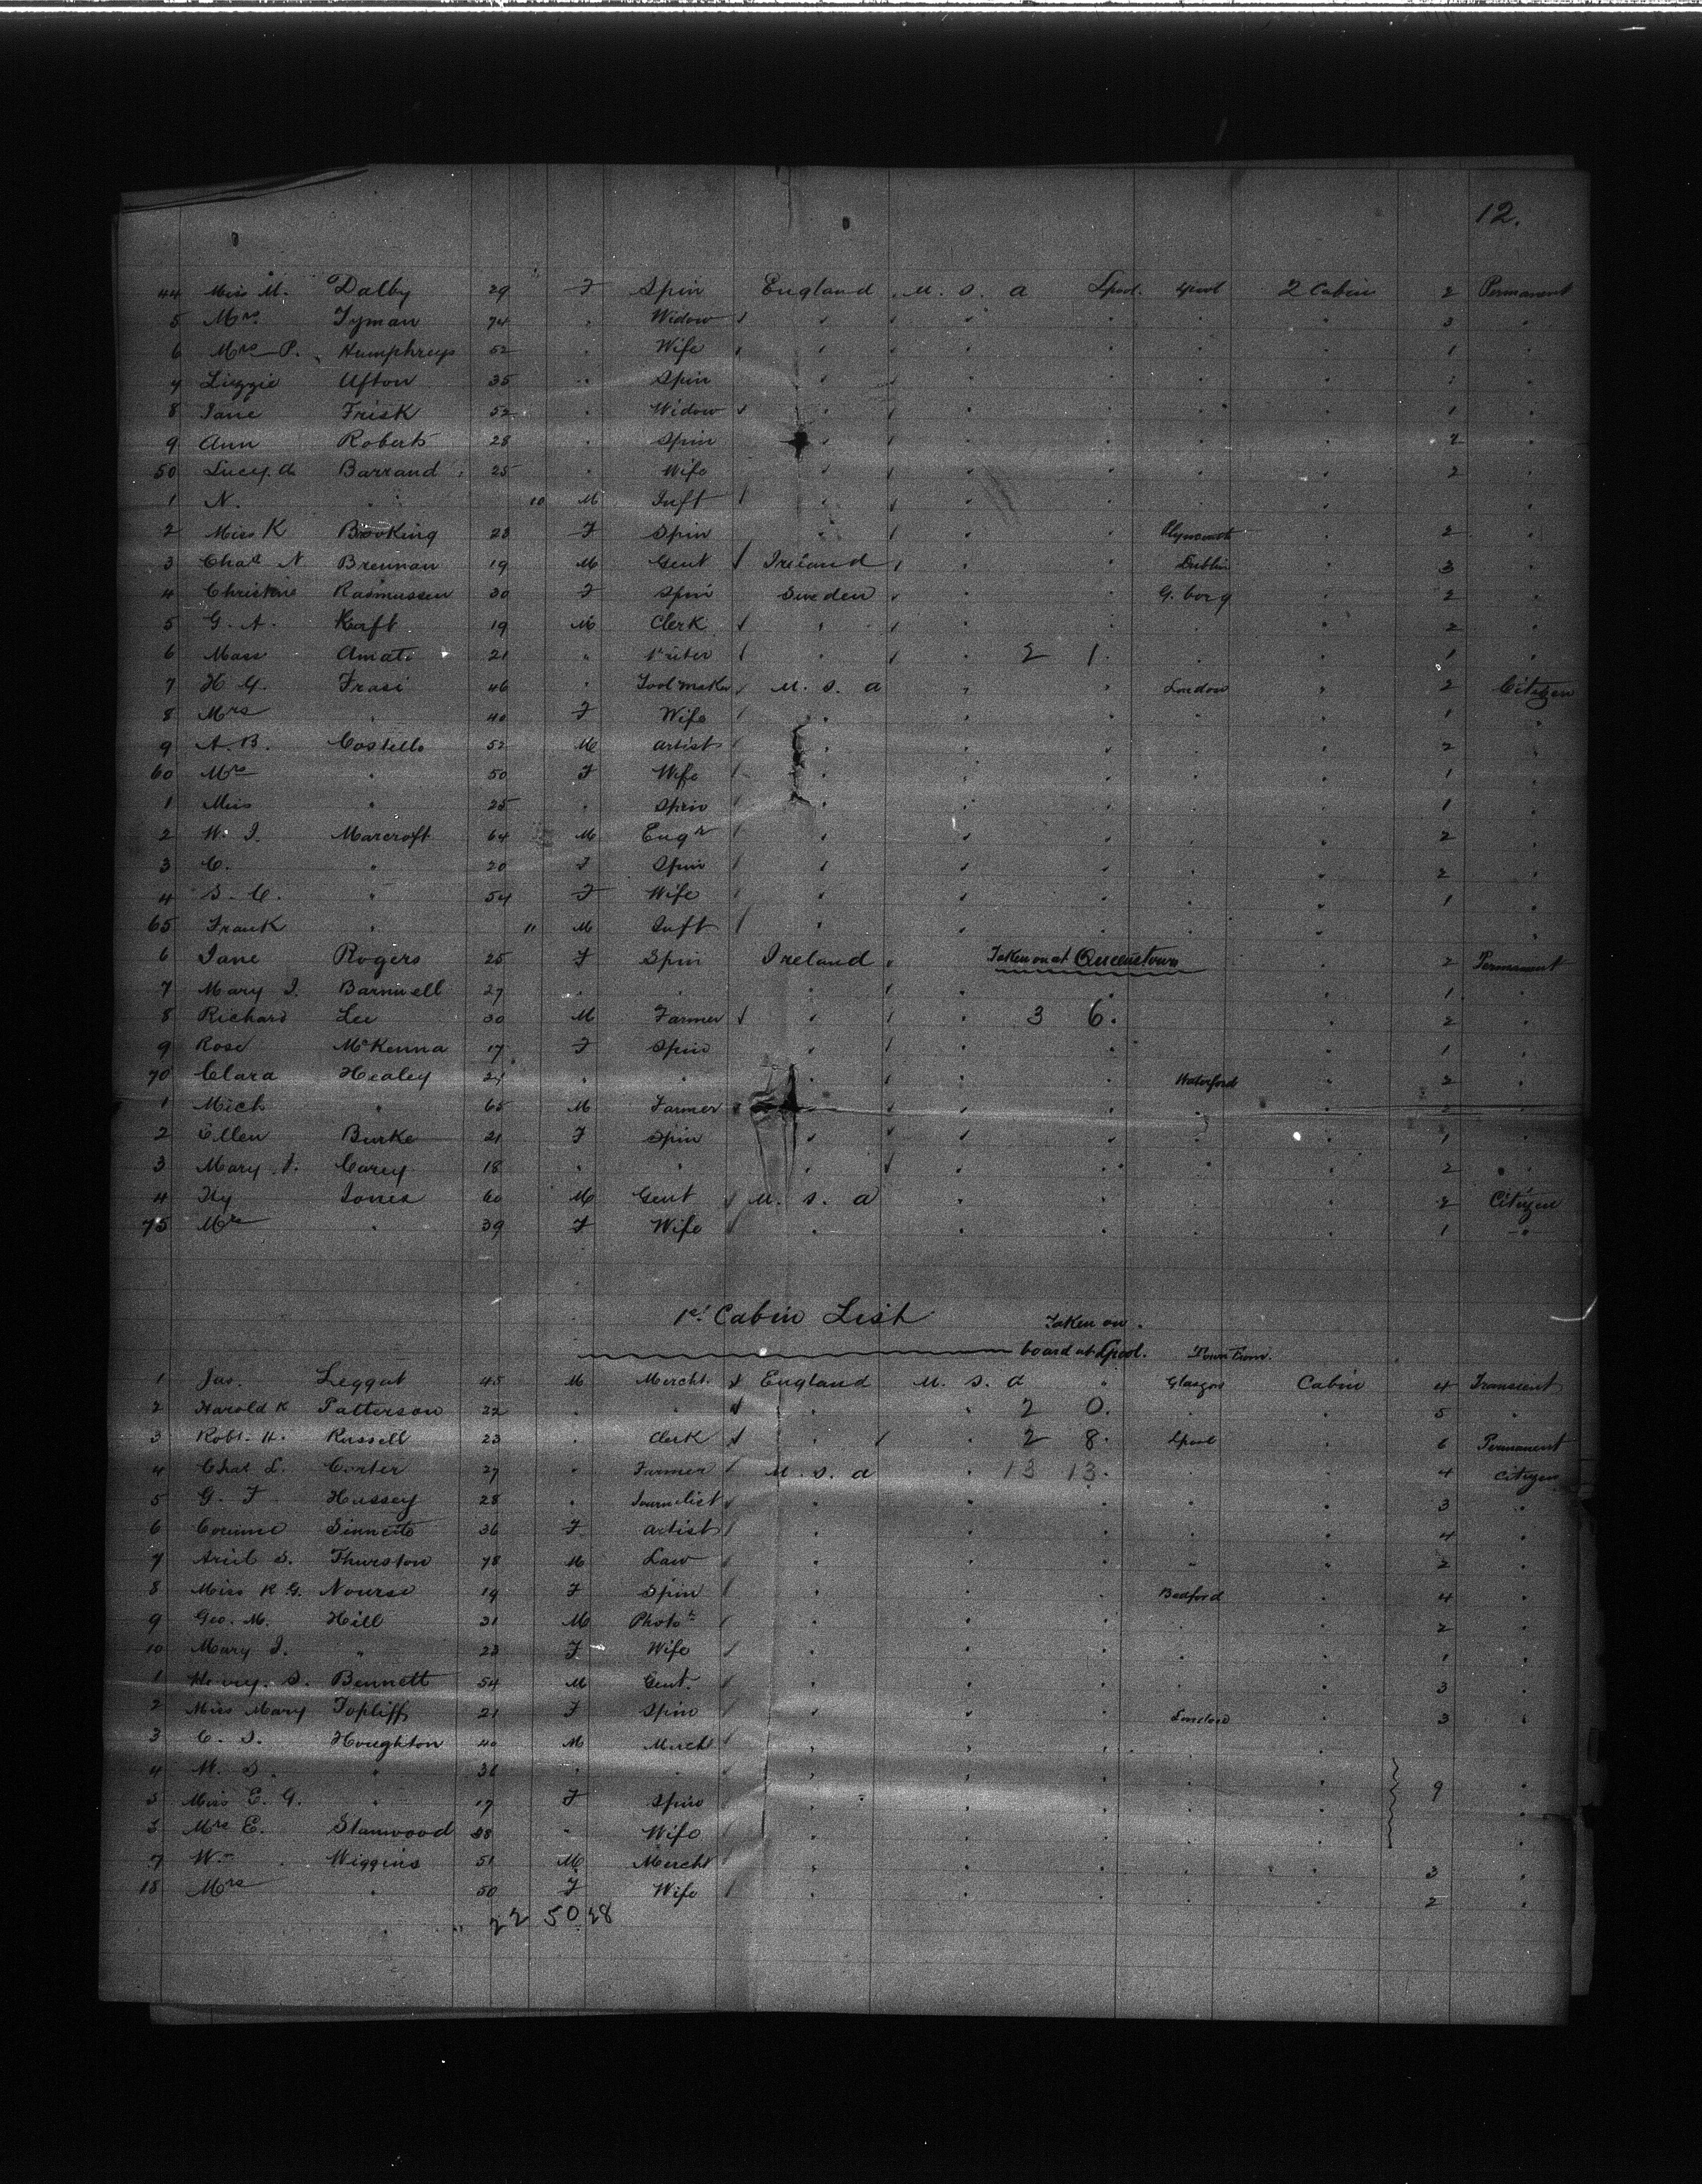 12.
44 Miss M. Dalby 29 F Spin England U. S. a Lpool. Lpool 2 Cabin 2 Permanent
5 Mrs Tyman 74 " Widow " " " " " 3 "
6 Mrs P. Humphreys 52 " Wife " " " " " 1 "
7 Lizzie Upton 35 " Spin " " " " " "
8 Jane Frisk 52 " Widow " " " " " 1 "
9 Ann Roberts 28 " Spin " " " " " 2 "
50 Lucy. A Barrand 25 " Wife " " " " " 2 "
1 N. " 10 M Inft " " " " " "
2 Miss K Booking 28 F Spin " " " Plymouth " 2 "
3 Chas N Brennan 19 M Gent Ireland " " Dublin " 3 "
4 Christine Rasmussen 30 F Spin Sweden " " G. borg " 2 "
5 G. A. Kraft 19 M Clerk " " " " " 2 "
6 Mass Amati 21 " " " 2 1. " " 1 "
7 H G. Frasi 46 " Tool maker U. S. a " " London " 2 Citizen
8 Mrs " 40 F Wife " " " " " 1 "
9 A. B. Costello 52 M artist " " " " " 2 "
60 Mrs " 50 F Wife " " " " " 1 "
1 Miss " 25 " Spin " " " " " 1 "
2 W. J. Marcroft 64 M Engr " " " " " 2 "
3 C. " 20 F Spin " " " " " 2 "
4 S. C. " 54 F Wife " " " " " 1 "
65 Frank " 11 M Inft " " " " "
6 Jane Rogers 25 F Spin Ireland " Taken on at Queenstown " 2 Permanent
7 Mary J. Barnwell 27 " " " " " " 1 "
8 Richard Lee 30 M Farmer " " 3 6. " 2 "
9 Rose McKenna 17 F Spin " " " " 1 "
70 Clara Healey 21 " " " " " Waterford " 2 "
1 Mich " 65 M Farmer " " " " " 2 "
2 Ellen Burke 21 F Spin " " " " " 1 "
3 Mary A. Carey 18 " " " " " " " 2 "
4 Hy Jones 60 M Gent U. S. a " " " " 2 Citizen
75 Mrs " 39 F Wife " " " " " 1 "
1st Cabin List Taken on
board at Lpool. Town From.
1 Jas. Leggat 45 M Mercht. England U. S. a " Glasgow Cabin 4 Transient
2 Harold K Patterson 22 " " " " 2 0. " " 5 "
3 Robt. H. Russell 23 " Clerk " " 2 8. Lpool " 6 Permanent
4 Chas L. Corter 27 " Farmer U. S. a " 13 13. " " 4 Citizen
5 G. F. Hussey 28 " Journalist " " " " " 3 "
6 Corinne 36 F artist " " " " " 4 "
7 Ariel S. Thurston 78 M Law " " " " " 2 "
8 Miss K G. Nourse 19 F Spin " " " Bedford " 4 "
9 Geo. M. Hill 31 M Photo " " " " " 2 "
10 Mary J. " 23 F Wife " " " " " 1 "
1 Henry. S. Bennett 54 M Gent. " " " " " 3 "
2 Miss Mary Topliff 21 F Spin " " " London " 3 "
3 C. S. Houghton 40 M Mercht " " " " " "
4 W. S. " 36 " " " " " " " 9 "
5 Miss E. G. " 17 F Spin " " " " " "
5 Mrs E. Stanwood 38 " Wife " " " " " "
7 Wm Wiggins 51 M Mercht " " " " " 3 "
18 Mrs " 50 F Wife " " " " " 2 "
22 50 28